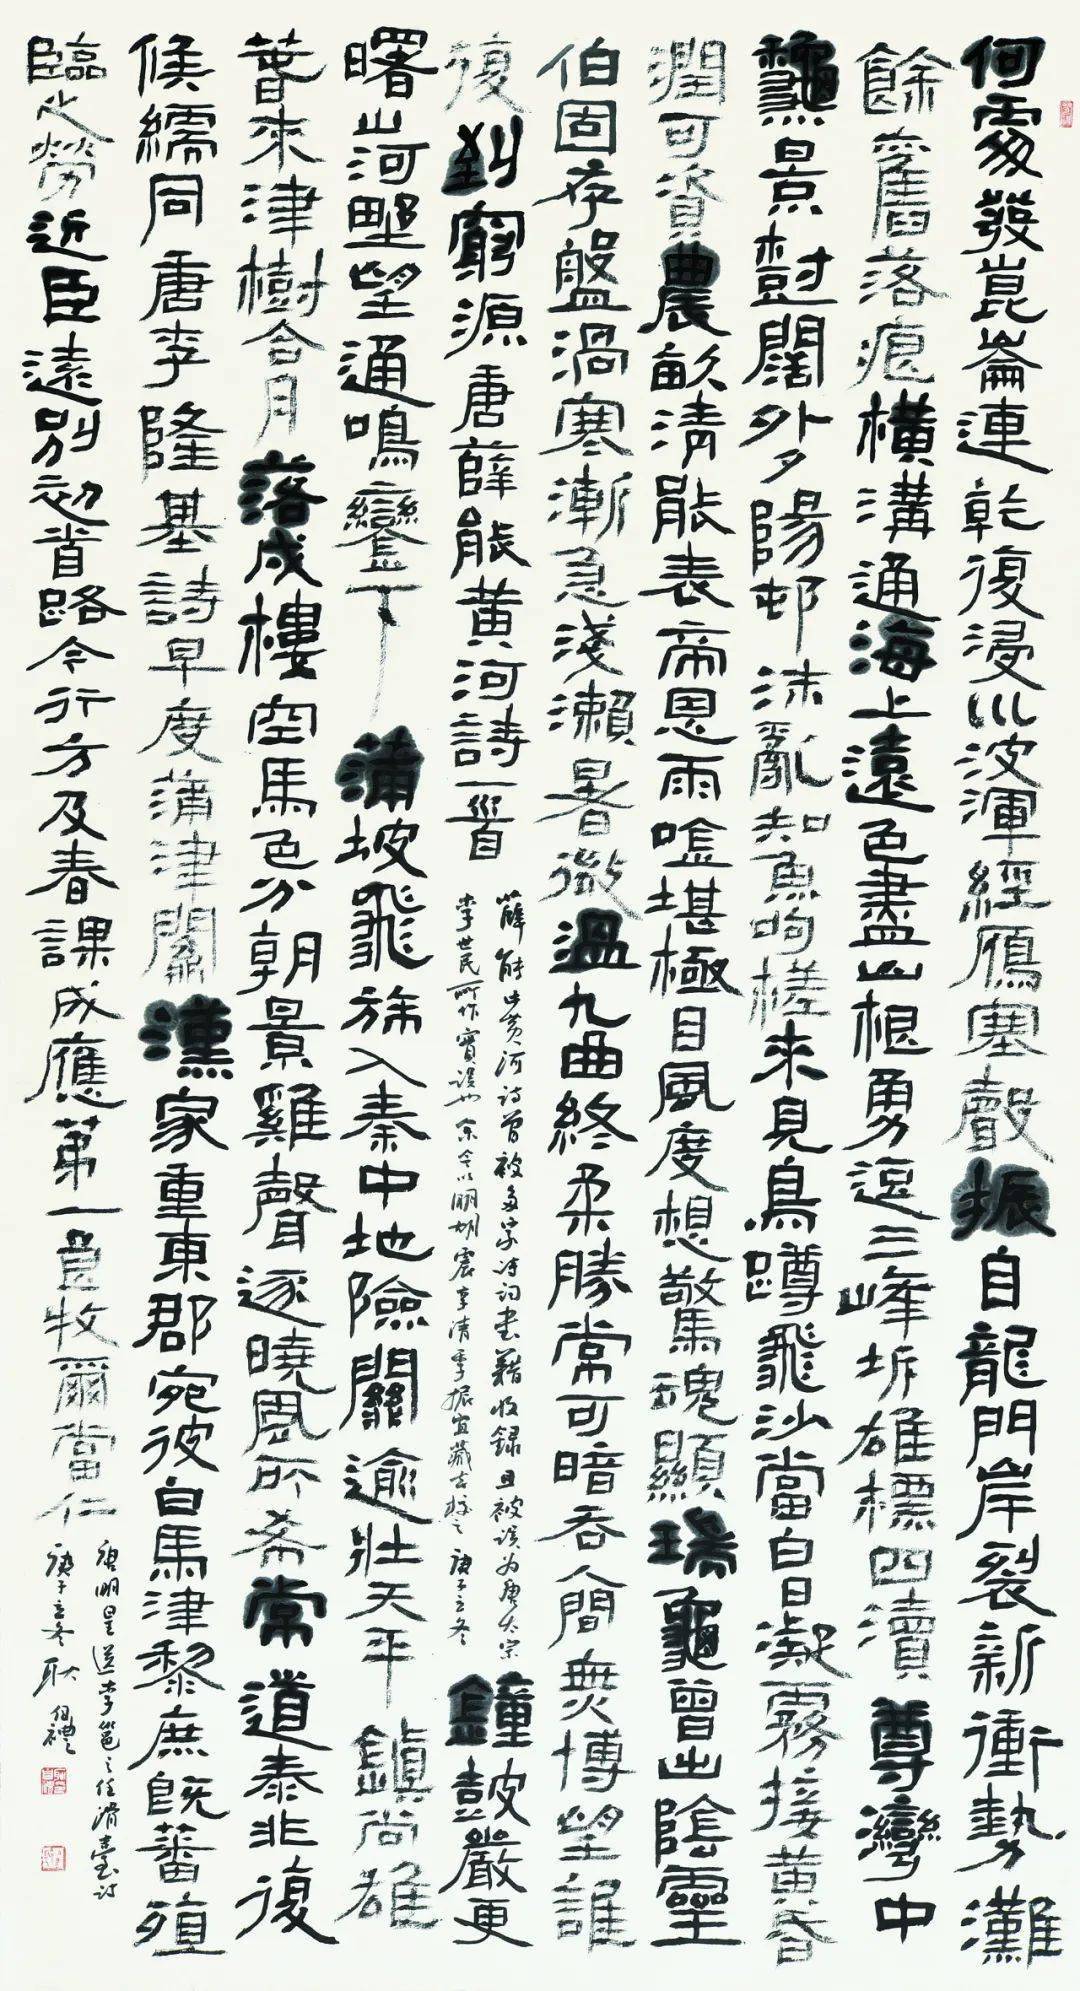 何處發崑崙連乾復浸川波渾經鴈塞聲振自龍門岸裂新衝勢灘
餘舊落痕橫溝通海上遠色盡山根勇逗三峰坼雄標四瀆尊灣中
龝景樹闊外夕陽邨沫亂知魚呴槎來見鳥蹲飛沙當白日凝霧接黃昏
潤可資農畝清能表帝恩雨吟堪極目風度想驚魂顯瑞龜曾出陰靈
伯固存盤渦寒漸急淺瀨暑微溫九曲終柔勝常可暗吞閒無博望誰
復到窮源唐薛能黃河詩一首
薛能此黃河诗曾被多家诗词书籍收録且被误为唐太宗
李世民所作實误也余今以明胡震亨清季振宜藏 庚子立冬
鐘鼓嚴更
曙山河野望通鳴鑾下蒲坡飛旆入秦中地險關逾壯天平鎮尚雄
春來津樹合月落戍樓空馬色分朝景雞聲逐曉風所希常道泰非復
候繻同唐李隆基詩早度蒲津關漢家重東郡宛彼白馬津黎庶既蕃殖
臨之勞近臣遠別初首路今行方及春課成應第一良牧爾當仁
唐明皇送李邕之任滑臺诗
庚子立冬耿伯禮